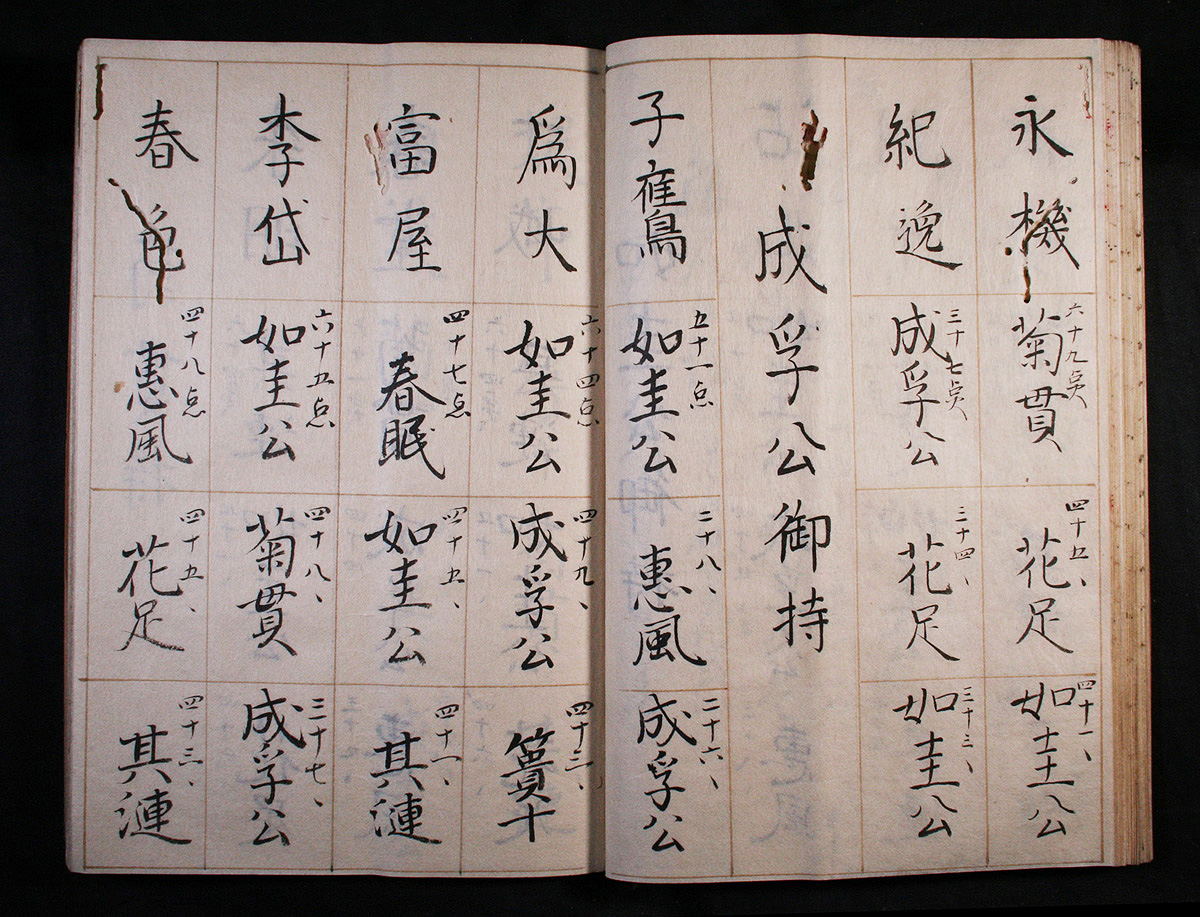 永機
六十九点
菊貫
四十五、
花足
四十一、
如圭公
紀逸
三十七点
成孚公
三十四、
花足
三十三、
如圭公
成孚公御持
子鷹
五十一点
如圭公
二十八、
惠風
二十六、
成孚公
為大
六十四点
如圭公
四十九、
成孚公
四十三、
簣十
富屋
四十七点
春眠
四十五、
如圭公
四十一、
其漣
李岱
六十五点
如圭公
四十八、
菊貫
三十七、
成孚公
春色
四十八点
惠風
四十五、
花足
四十三、
其漣